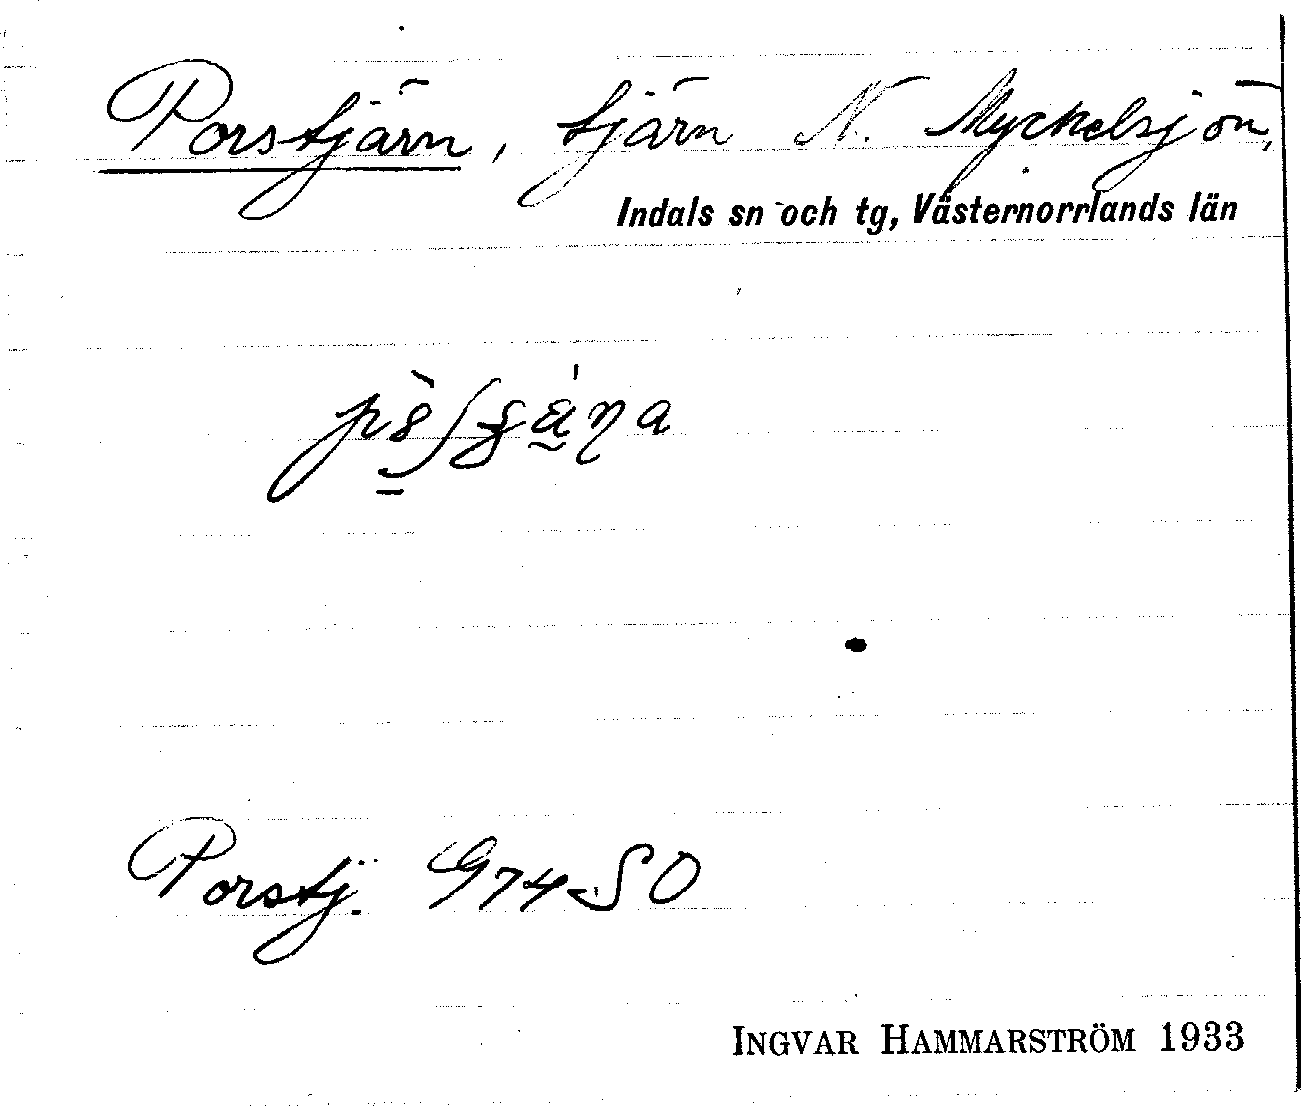 Porstjärn, tjärn N. Myckelsjön,
Indals sn och tg, Västernorrlands län
Porstj. G74SO
INGVAR HAMMARSTRÖM 1933